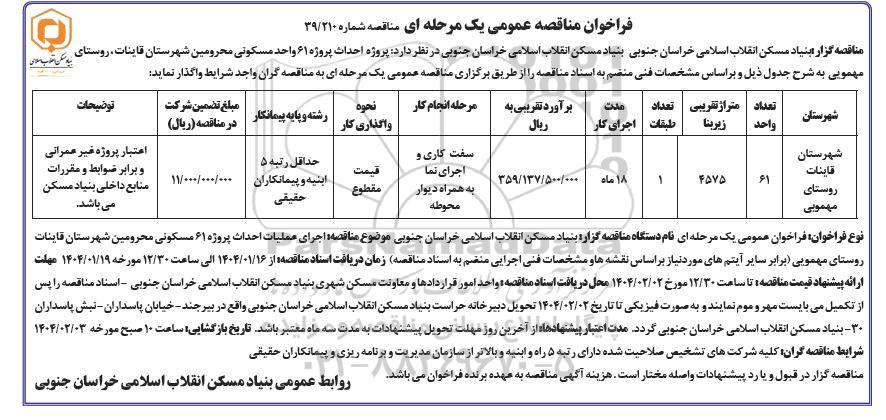 فراخوان مناقصه عمومی یک مرحله ای مناقصه شماره ۳۹/۲۱۰
بنیاد مسکن انقلاب اسلامی
مناقصه گزار: بنیاد مسکن انقلاب اسلامی خراسان جنوبی بنیاد مسکن انقلاب اسلامی خراسان جنوبی در نظر دارد: پروژه احداث پروژه ۶۱ واحد مسکونی محرومین شهرستان قاینات ، روستای
مهمویی به شرح جدول ذیل و براساس مشخصات فنی منضم به اسناد مناقصه را از طریق برگزاری مناقصه عمومی یک مرحله ای به مناقصه گران واجد شرایط واگذار نماید:
شهرستان | تعداد واحد | متراژ تقریبی زیربنا | تعداد طبقات | مدت اجرای کار | برآورد تقریبی به ریال | مرحله انجام کار | نحوه واگذاری کار | رشته و پایه پیمانکار | مبلغ تضمین شرکت در مناقصه (ریال) | توضیحات
شهرستان قاینات روستای مهمویی | ۶۱ | ۴۵۷۵ | ۱ | ۱۸ ماه | ۳۵۹/۱۳۷/۵۰۰/۰۰۰ | سفت کاری و اجرای نما به همراه دیوار محوطه | قیمت مقطوع | حداقل رتبه ۵ ابنیه و پیمانکاران حقیقی | ۱۱/۰۰۰/۰۰۰/۰۰۰ | اعتبار پروژه غیر عمرانی و برابر ضوابط و مقررات منابع داخلی بنیاد مسکن می باشد.
نوع فراخوان: فراخوان عمومی یک مرحله ای نام دستگاه مناقصه گزار: بنیاد مسکن انقلاب اسلامی خراسان جنوبی موضوع مناقصه: اجرای عملیات احداث پروژه ۶۱ مسکونی محرومین شهرستان قاینات
روستای مهمویی (برابر سایر آیتم های موردنیاز براساس نقشه ها و مشخصات فنی اجرایی منضم به اسناد مناقصه) زمان دریافت اسناد مناقصه: از ۱۴۰۴/۰۱/۱۶ الی ساعت ۱۲/۳۰ مورخه ۱۴۰۴/۰۱/۱۹ مهلت
ارائه پیشنهاد قیمت مناقصه: تا ساعت ۱۲/۳۰ مورخ ۱۴۰۴/۰۲/۰۲ محل دریافت اسناد مناقصه: واحد امور قراردادها و معاونت مسکن شهری بنیاد مسکن انقلاب اسلامی خراسان جنوبی - اسناد مناقصه را پس
از تکمیل می بایست مهر و موم نمایند و به صورت فیزیکی تا تاریخ ۱۴۰۴/۰۲/۰۲ تحویل دبیرخانه حراست بنیاد مسکن انقلاب اسلامی خراسان جنوبی واقع در بیرجند- خیابان پاسداران- نبش پاسداران
۳۰- بنیاد مسکن انقلاب اسلامی خراسان جنوبی گردد. مدت اعتبار پیشنهادها: از آخرین روز مهلت تحویل پیشنهادات به مدت سه ماه معتبر باشد. تاریخ بازگشایی: ساعت ۱۰ صبح مورخه ۱۴۰۴/۰۲/۰۳
شرایط مناقصه گران: کلیه شرکت های تشخیص صلاحیت شده دارای رتبه ۵ راه و ابنیه و بالاتر از سازمان مدیریت و برنامه ریزی و پیمانکاران حقیقی
مناقصه گزار در قبول و یا رد پیشنهادات واصله مختار است . هزینه آگهی مناقصه به عهده برنده فراخوان می باشد.
روابط عمومی بنیاد مسکن انقلاب اسلامی خراسان جنوبی
ParsNamadData
۰۲۱-۸۸۳۴۹۶۷۰-۵